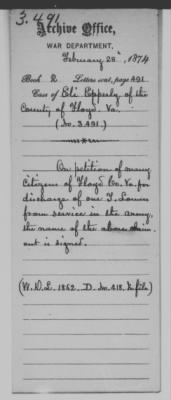 3.491
Archive Office,
WAR DEPARTMENT,
February 28", 1874
Book 2 Letters rec'd, page 491
Case of Eli Epperly of the
County of Floyd, Va.
(No. 3.491)
On petition of many
Citizens of Floyd Co. Va. for
discharge of one T. 
from service in the army,
the name of the above claim-
ant is signed.
(W.D.L. 1862 D. No. 418. In file)